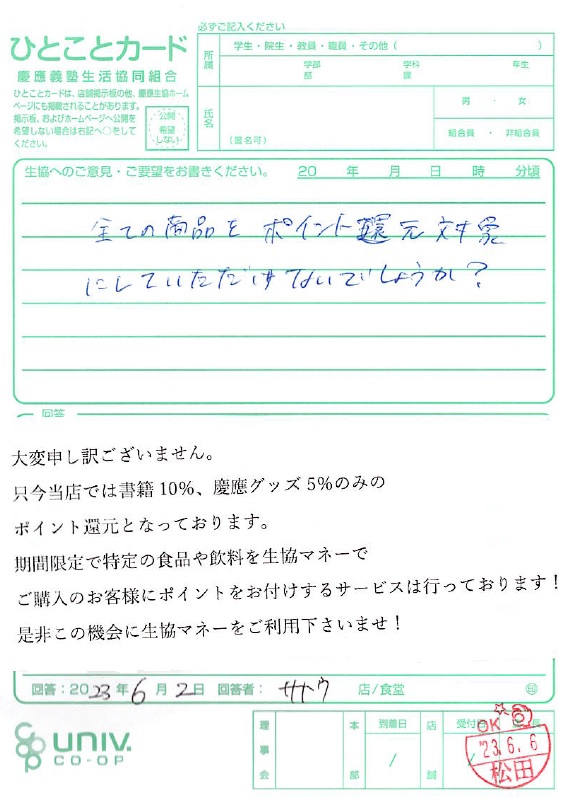 必ずご記入ください
ひとことカード
慶應義塾生活協同組合
ひとことカードは、店舗掲示板の他、慶應生協ホームページにも掲載されることがあります。
掲示板、およびホームページへ公開を
希望しない場合は右記へ○をして
ください。
公開
希望
しない
所属
学生・院生・教員・職員・その他（　　　）
学部
部
学科
課
年生
氏名
（匿名可）
男 ・ 女
組合員 ・ 非組合員
生協へのご意見・ご要望をお書きください。 20　年　月　日　時　分頃
全ての商品を ポイント還元対象
にしていただけないでしょうか？
回答
大変申し訳ございません。
只今当店では書籍10%、慶應グッズ5%のみの
ポイント還元となっております。
期間限定で特定の食品や飲料を生協マネーで
ご購入のお客様にポイントをお付けするサービスは行っております！
是非この機会に生協マネーをご利用下さいませ！
回答：2023年 6月 2日 回答者： サトウ 店/食堂 ㊞
UNIV.
CO-OP
理事会
本部
到着日
/
店舗
受付日
長
OK
'23.6.6
松田